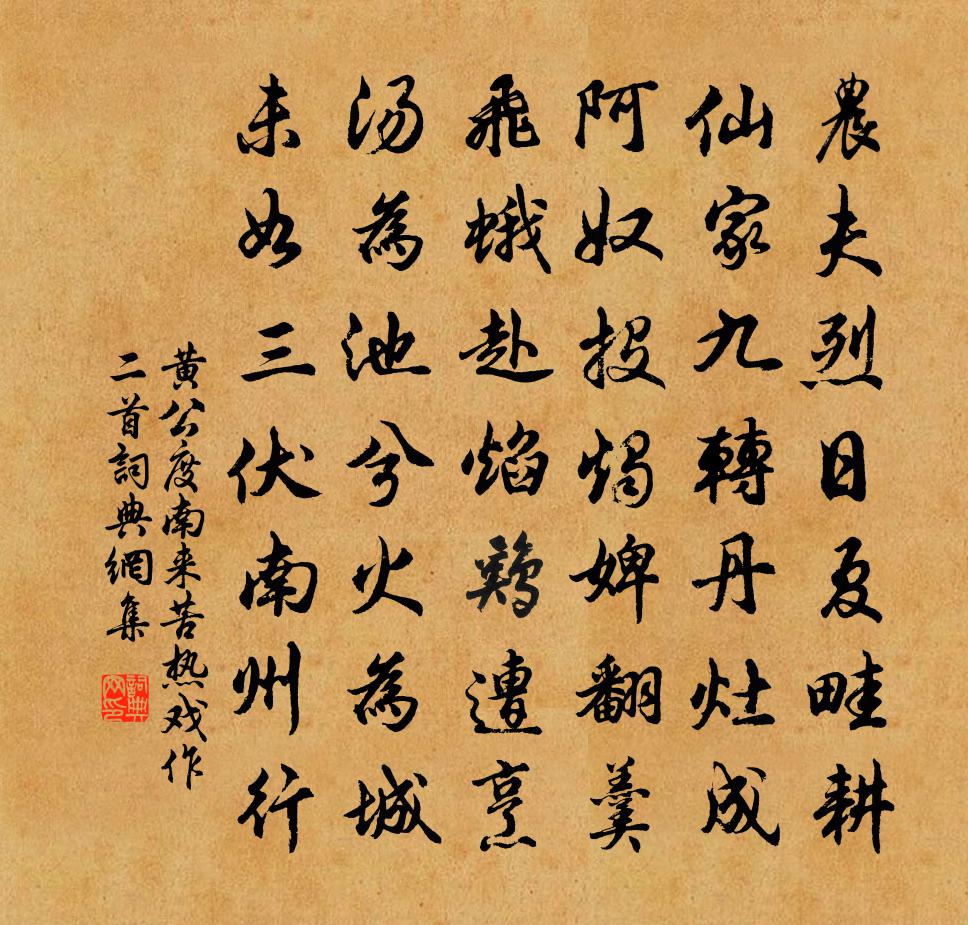 農夫烈日夏畦耕
仙家九轉丹灶成
阿奴投燭婢翻羹
飛蛾赴焰鷄遭烹
湯為池兮火為城
未如三伏南州行
黄公度南来苦热戏作
二首詞典網集
詞典网印